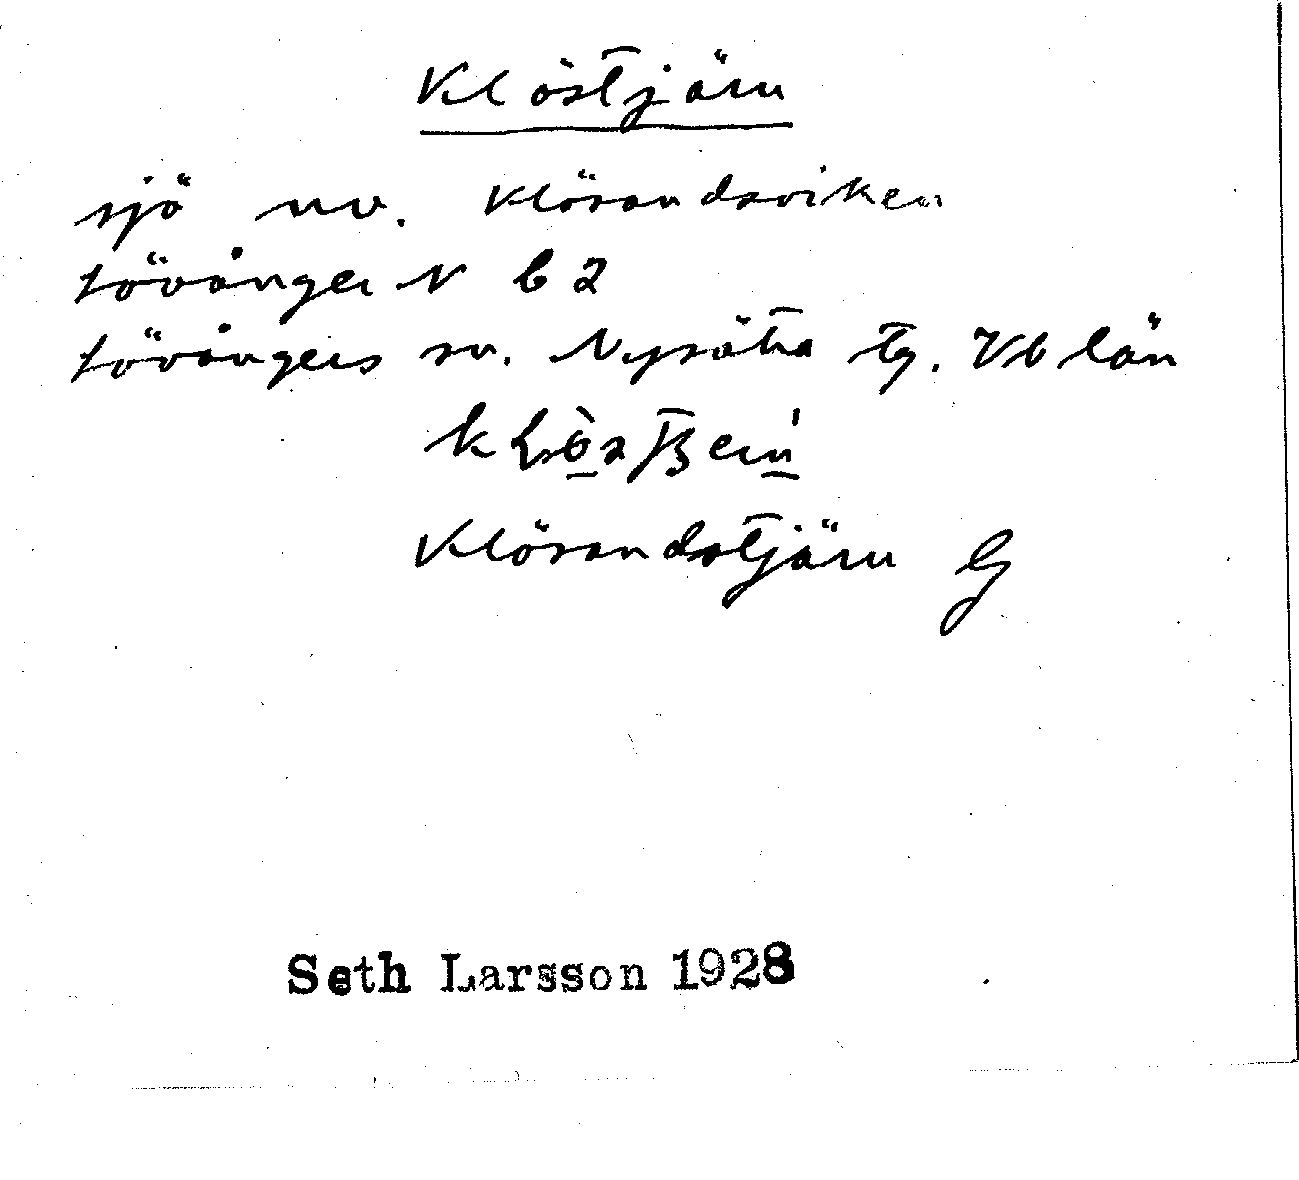 Klöstjärn
sjö nv. Klösandsviken
Lövånger N b 2
Lövångers sn. Nysätra tg. Vb län
Klösandstjärn G
Seth Larsson 1928